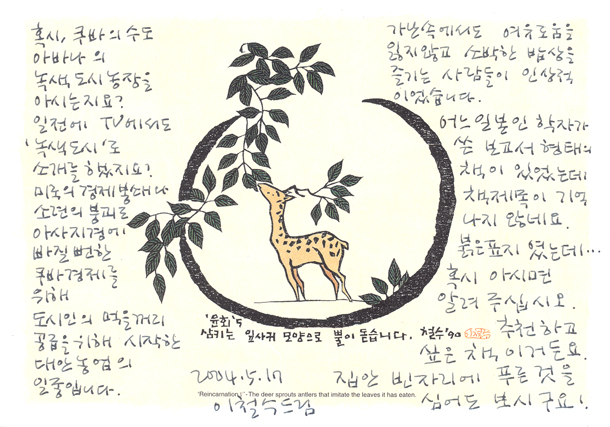 혹시, 쿠바의 수도
아바나의
녹색도시농장을
아시는지요?
일전에 TV에서도
'녹색도시'로
소개를 했지요?
미국의 경제봉쇄나
소련의 붕괴로
아사지경에
빠질 뻔한
쿠바경제를
위해
도시인의 먹을꺼리
공급을 위해 시작한
대안농업의
일종입니다.
가난속에서도 여유로움을
잃지않고 소박한 밥상을
즐기는 사람들이 인상적
이었습니다.
어느 일본인 학자가
쓴 보고서 형태의
책이 있었는데
책제목이 기억
나지 않네요.
붉은표지 였는데...
혹시 아시면
알려 주십시오.
추천하고
싶은 책이거든요.
집안 빈자리에 푸른것을
심어도 보시구요!
'윤회'5
삼키는 잎사귀 모양으로 뿔이 돋습니다. 철수'90
2004.5.17
"Reincarnation I"- The deer sprouts antlers that imitate the leaves it has eaten.
이철수드림